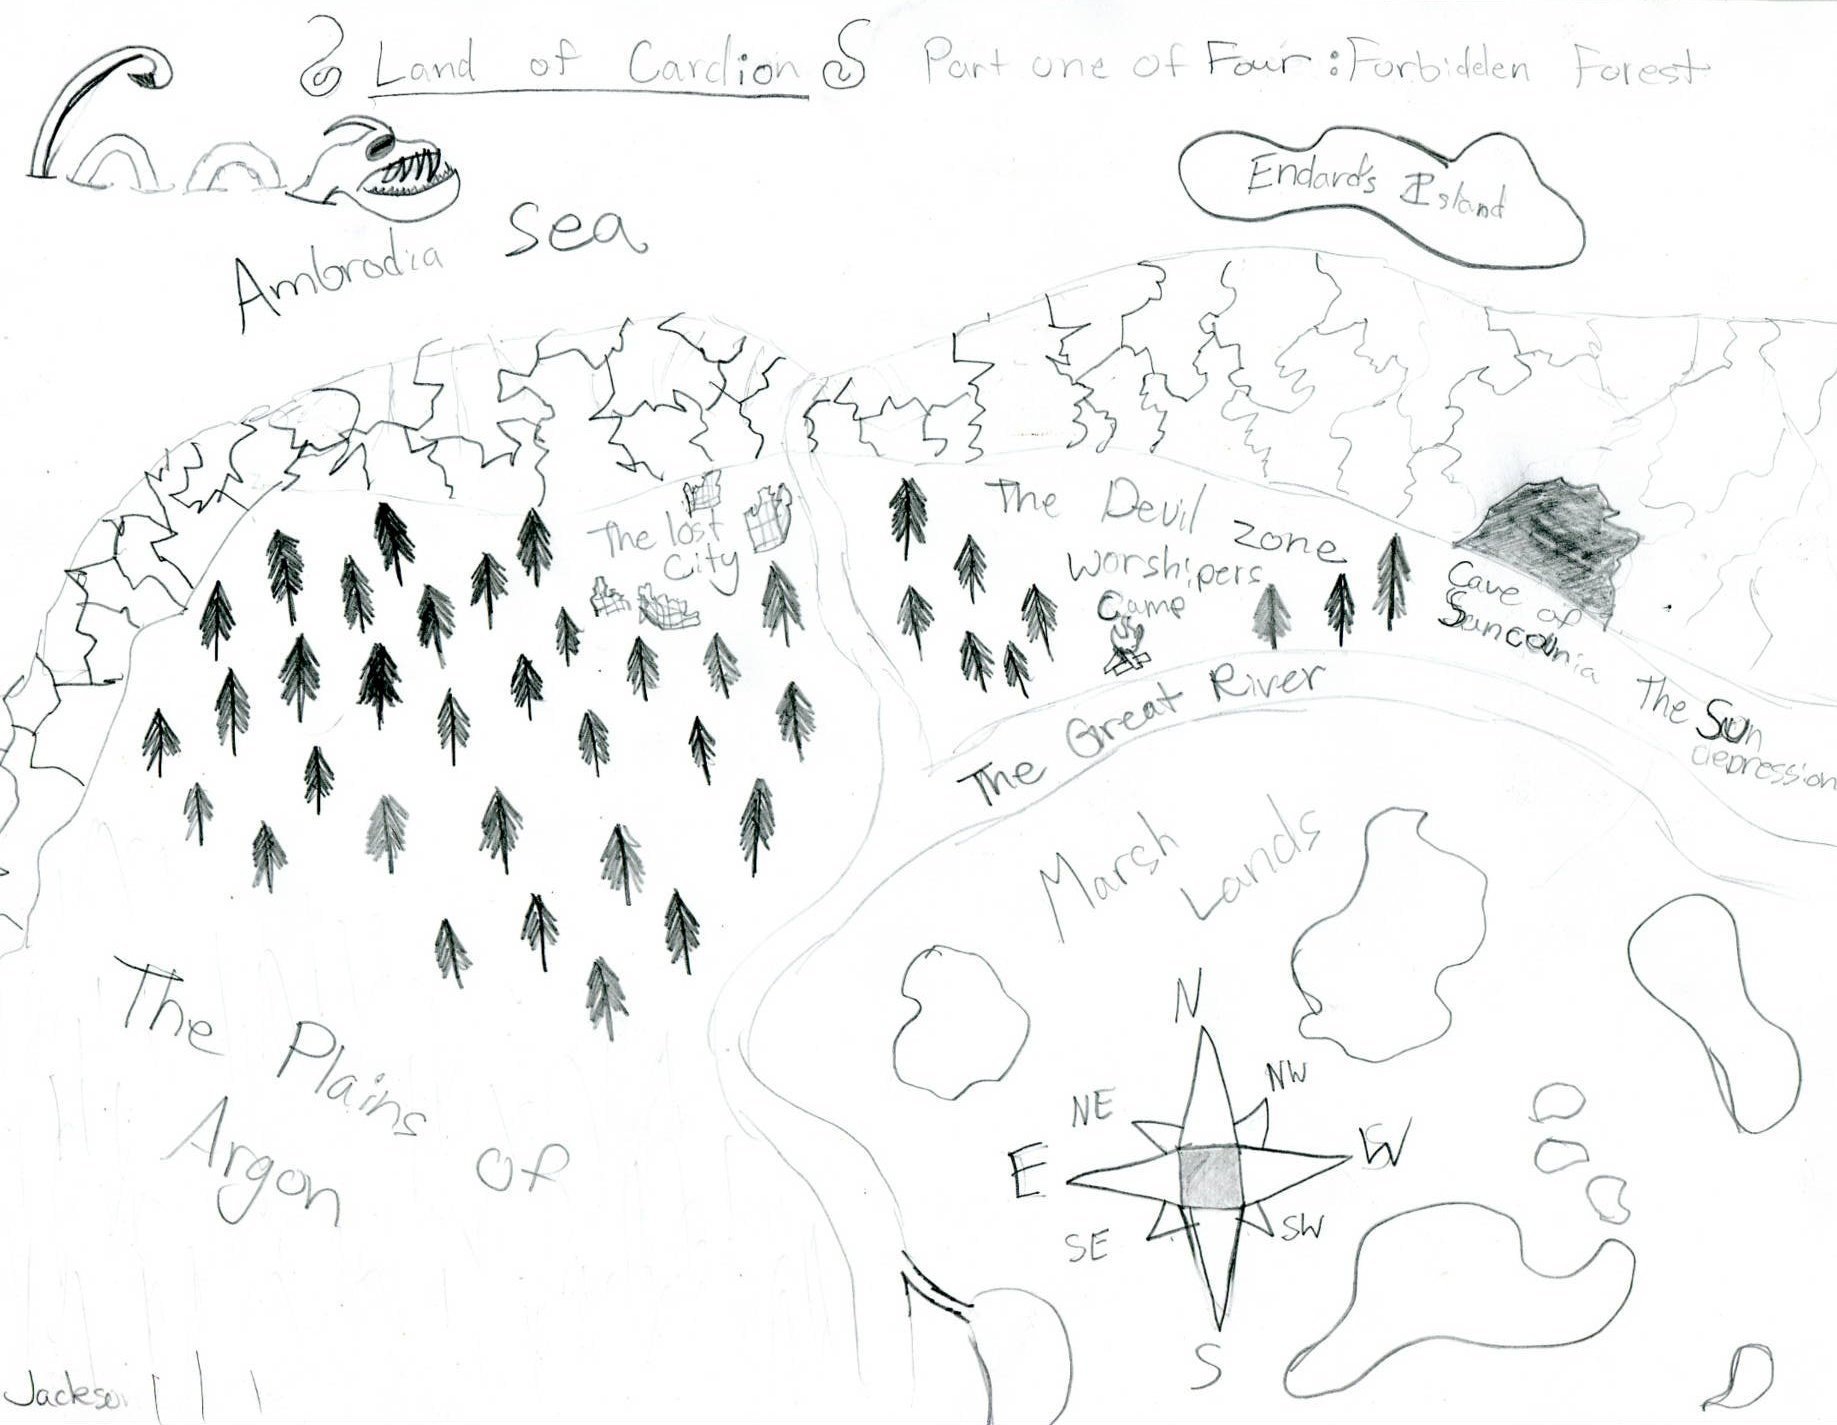 Land of Cardion Part one of Four: Forbidden Forest
Endard's Island
Ambrodia Sea
The lost
City
The Devil
Worshipers
Camp
Zone
Cave of
Suncdnia
The Sun
depression
The Great River
Marsh
Lands
The Plains of
Argon
N
NE
NW
E
W
SE
SW
S
Jackson